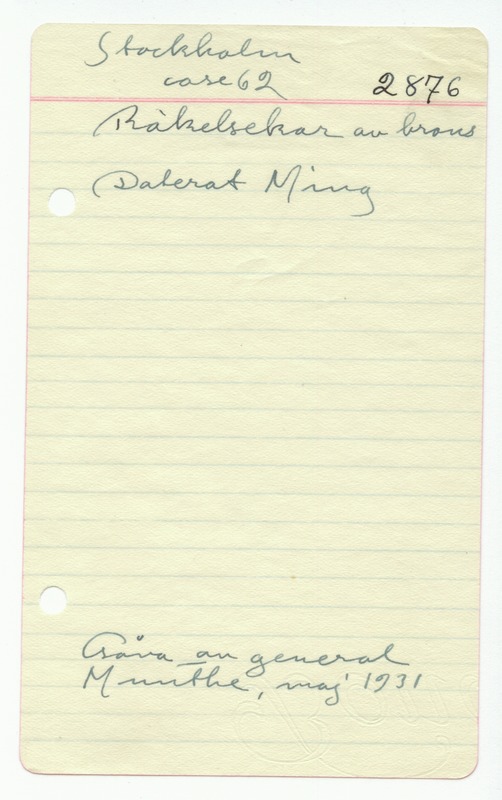 Stockholm
case 62
2876
Rökelsekar av brons
Daterat Ming
Gåva av general
Munthe, maj 1931